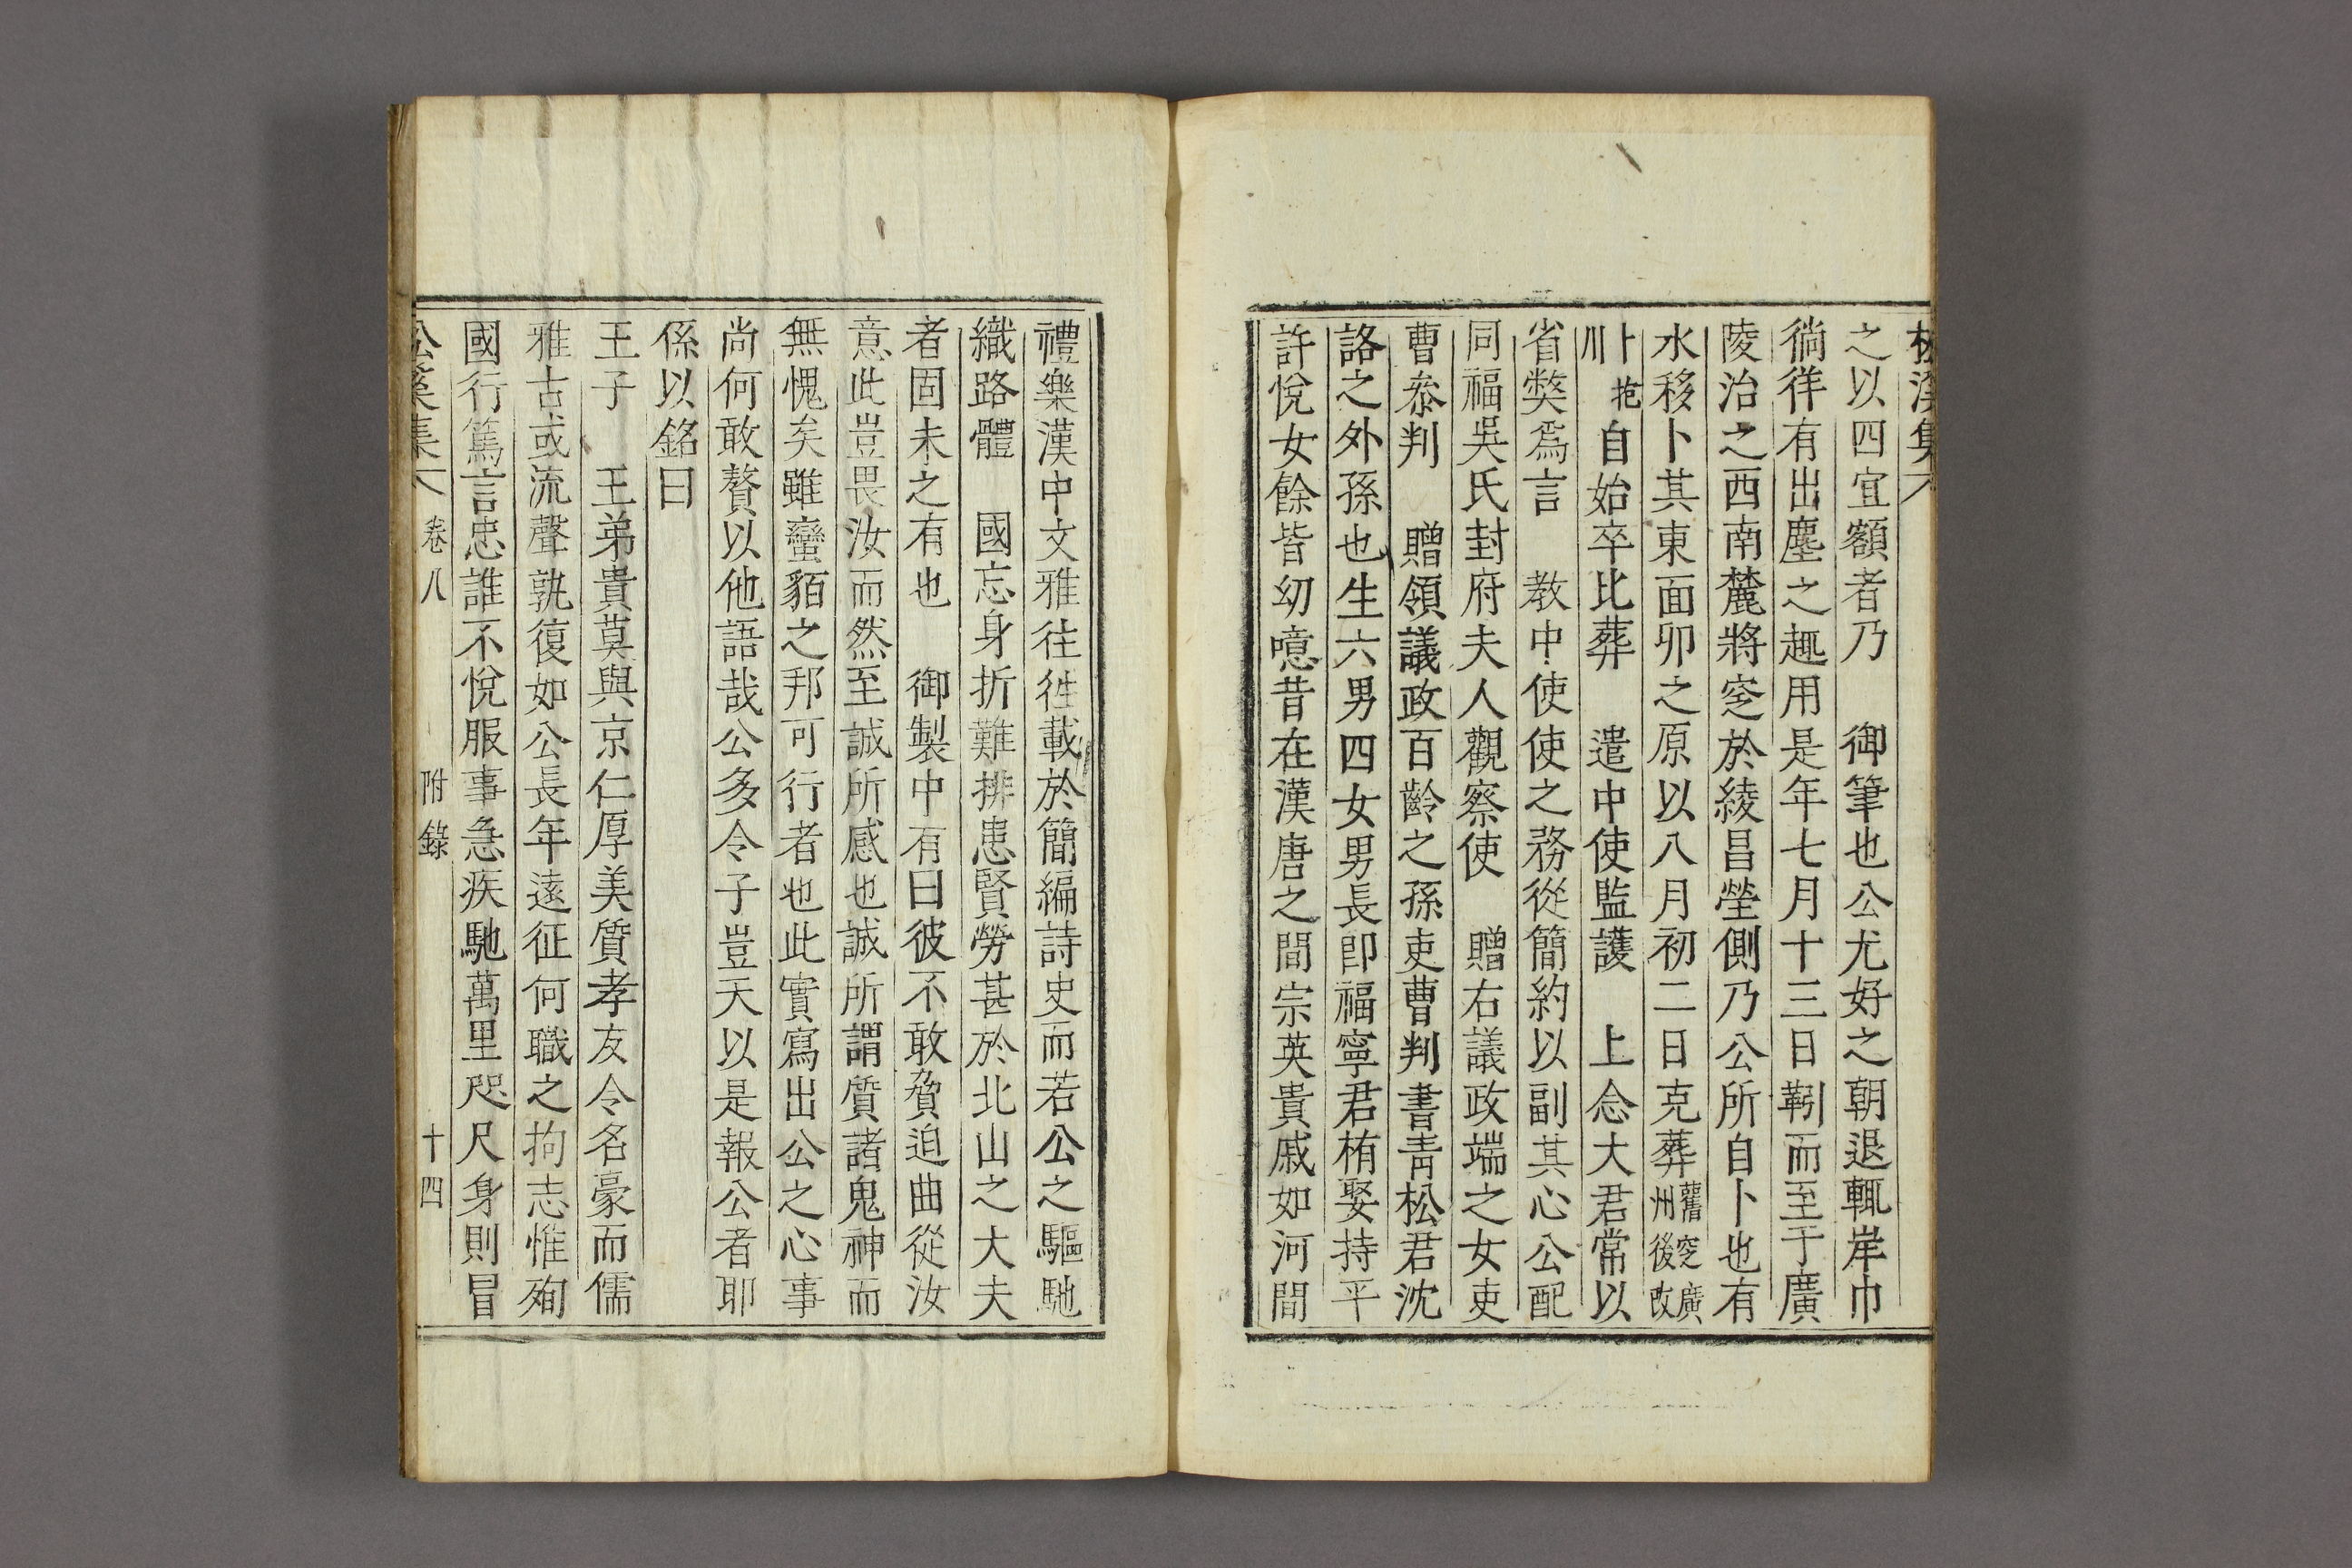 松溪集
之以四宜額者乃 御筆也公尤好之朝退輒岸巾
徜徉有出塵之趣用是年七月十三日靷而至于廣
陵治之西南麓將窆於綾昌塋側乃公所自卜也有
水移卜其東面卯之原以八月初二日克葬舊窆廣州後改
卜抱川自始卒比葬 遣中使監護 上念大君常以
省獘爲言 教中使使之務從簡約以副其心公配
同福吳氏封府夫人觀察使 贈右議政端之女吏
曹叅判 贈領議政百齡之孫吏曹判書靑松君沈
詻之外孫也生六男四女男長卽福寧君栯娶持平
許悅女餘皆幼噫昔在漢唐之間宗英貴戚如河間
禮樂漢中文雅往往載於簡編詩史而若公之驅馳
織路體 國忘身折難排患賢勞甚於北山之大夫
者固未之有也 御製中有曰彼不敢脅迫曲從汝
意此豈畏汝而然至誠所感也誠所謂質諸鬼神而
無愧矣雖蠻貊之邦可行者也此實寫出公之心事
尚何敢贅以他語哉公多令子豈天以是報公者耶
係以銘曰
王子 王弟貴莫與京仁厚美質孝友令名豪而儒
雅古或流聲孰復如公長年遠征何職之拘志惟殉
國行篤言忠誰不悅服事急疾馳萬里咫尺身則冒
松溪集 卷八 附錄 十四